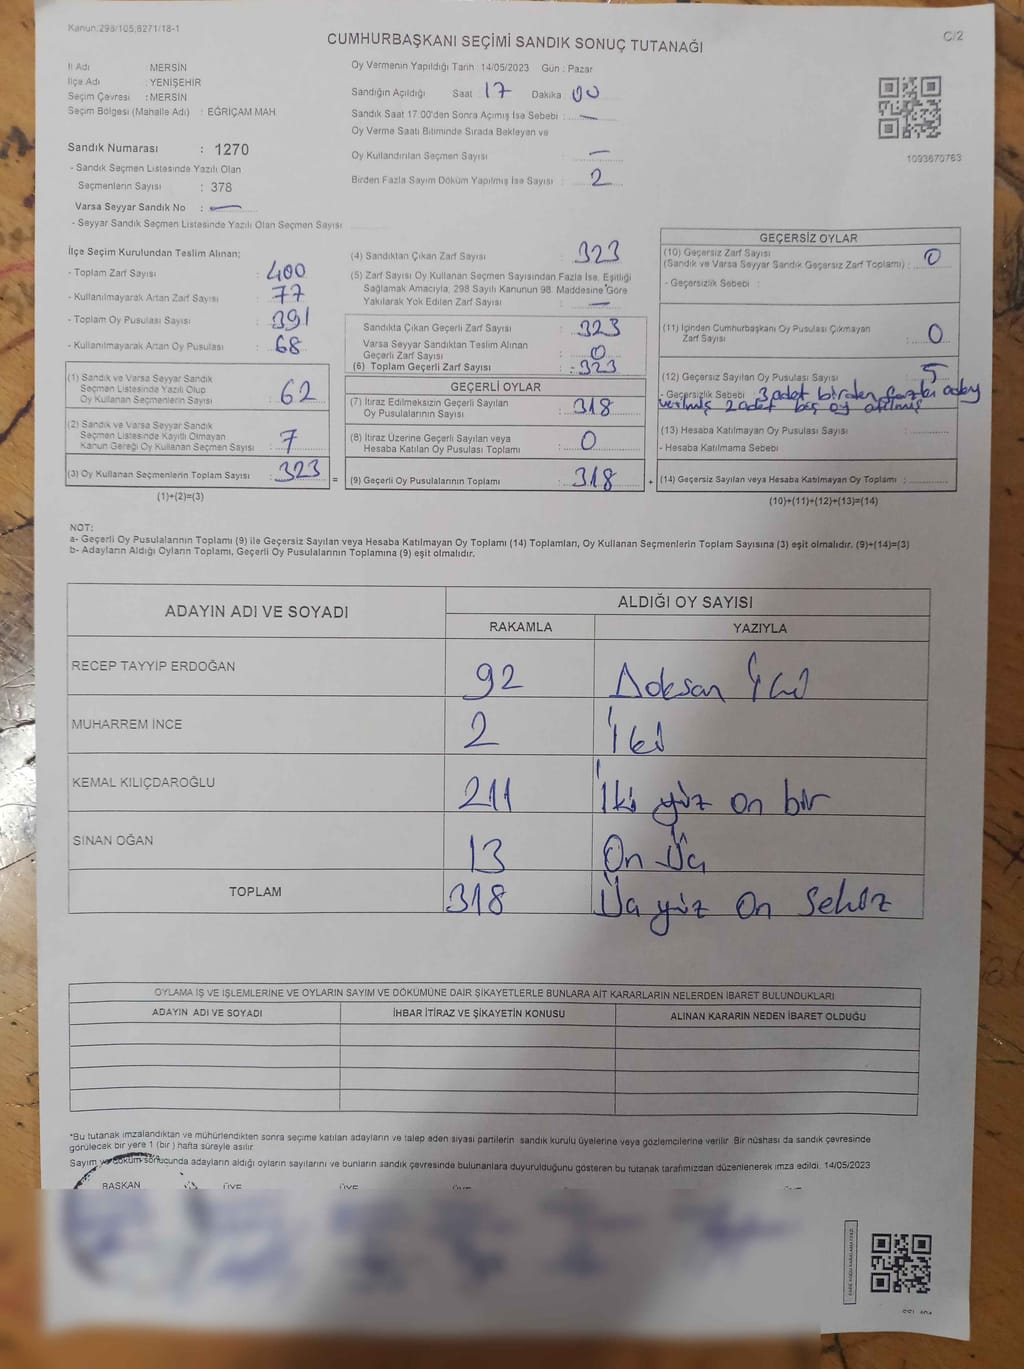 Kanun:298/105;8271/18-1
C/2
CUMHURBAŞKANI SEÇİMİ SANDIK SONUÇ TUTANAĞI
İl Adı : MERSİN
İlçe Adı : YENİŞEHİR
Seçim Çevresi : MERSİN
Seçim Bölgesi (Mahalle Adı) : EĞRİÇAM MAH
Sandık Numarası : 1270
- Sandık Seçmen Listesinde Yazılı Olan
Seçmenlerin Sayısı : 378
Varsa Seyyar Sandık No :
- Seyyar Sandık Seçmen Listesinde Yazılı Olan Seçmen Sayısı
Oy Vermenin Yapıldığı Tarih 14/05/2023 Gün : Pazar
Sandığın Açıldığı Saat 17 Dakika 00
Sandık Saat 17:00'den Sonra Açımış İse Sebebi :
Oy Verme Saati Bitiminde Sırada Bekleyen ve
Oy Kullandırılan Seçmen Sayısı :
Birden Fazla Sayım Döküm Yapılmış İse Sayısı : 2
1093670763
İlçe Seçim Kurulundan Teslim Alınan;
- Toplam Zarf Sayısı : 400
- Kullanılmayarak Artan Zarf Sayısı : 77
- Toplam Oy Pusulası Sayısı : 391
- Kullanılmayarak Artan Oy Pusulası : 68
(1) Sandık ve Varsa Seyyar Sandık
Seçmen Listesinde Yazılı Olup
Oy Kullanan Seçmenlerin Sayısı : 62
(2) Sandık ve Varsa Seyyar Sandık
Seçmen Listesinde Kayıtlı Olmayan
Kanun Gereği Oy Kullanan Seçmen Sayısı : 7
(3) Oy Kullanan Seçmenlerin Toplam Sayısı : 323
(1)+(2)=(3)
(4) Sandıktan Çıkan Zarf Sayısı : 323
(5) Zarf Sayısı Oy Kullanan Seçmen Sayısından Fazla İse, Eşitliği
Sağlamak Amacıyla, 298 Sayılı Kanunun 98. Maddesine Göre
Yakılarak Yok Edilen Zarf Sayısı :
Sandıkta Çıkan Geçerli Zarf Sayısı : 323
Varsa Seyyar Sandıktan Teslim Alınan
Geçerli Zarf Sayısı : 0
(6) Toplam Geçerli Zarf Sayısı : 323
=
GEÇERLİ OYLAR
(7) İtiraz Edilmeksizin Geçerli Sayılan
Oy Pusulalarının Sayısı : 318
(8) İtiraz Üzerine Geçerli Sayılan veya
Hesaba Katılan Oy Pusulası Toplamı : 0
(9) Geçerli Oy Pusulalarının Toplamı : 318
+
GEÇERSİZ OYLAR
(10) Geçersiz Zarf Sayısı
(Sandık ve Varsa Seyyar Sandık Geçersiz Zarf Toplamı) : 0
- Geçersizlik Sebebi :
(11) İçinden Cumhurbaşkanı Oy Pusulası Çıkmayan
Zarf Sayısı : 0
(12) Geçersiz Sayılan Oy Pusulası Sayısı : 5
- Geçersizlik Sebebi : 3 adet birden fazla aday
verilmiş 2 adet boş oy atılmış
(13) Hesaba Katılmayan Oy Pusulası Sayısı :
- Hesaba Katılmama Sebebi
(14) Geçersiz Sayılan veya Hesaba Katılmayan Oy Toplamı :
(10)+(11)+(12)+(13)=(14)
NOT:
a- Geçerli Oy Pusulalarının Toplamı (9) ile Geçersiz Sayılan veya Hesaba Katılmayan Oy Toplamı (14) Toplamları, Oy Kullanan Seçmenlerin Toplam Sayısına (3) eşit olmalıdır. (9)+(14)=(3)
b- Adayların Aldığı Oyların Toplamı, Geçerli Oy Pusulalarının Toplamına (9) eşit olmalıdır.
ADAYIN ADI VE SOYADI
ALDIĞI OY SAYISI
RAKAMLA YAZIYLA
RECEP TAYYİP ERDOĞAN 92 Doksan İki
MUHARREM İNCE 2 İki
KEMAL KILIÇDAROĞLU 211 İki yüz on bir
SİNAN OĞAN 13 On Üç
TOPLAM 318 Üç yüz On Sekiz
OYLAMA İŞ VE İŞLEMLERİNE VE OYLARIN SAYIM VE DÖKÜMÜNE DAİR ŞİKAYETLERLE BUNLARA AİT KARARLARIN NELERDEN İBARET BULUNDUKLARI
ADAYIN ADI VE SOYADI İHBAR İTİRAZ VE ŞİKAYETİN KONUSU ALINAN KARARIN NEDEN İBARET OLDUĞU
*Bu tutanak imzalandıktan ve mühürlendikten sonra seçime katılan adayların ve talep eden siyasi partilerin sandık kurulu üyelerine veya gözlemcilerine verilir. Bir nüshası da sandık çevresinde
görülecek bir yere 1 (bir) hafta süreyle asılır.
Sayım ve döküm sonucunda adayların aldığı oyların sayılarını ve bunların sandık çevresinde bulunanlara duyurulduğunu gösteren bu tutanak tarafımızdan düzenlenerek imza edildi. 14/05/2023
BAŞKAN ÜYE ÜYE